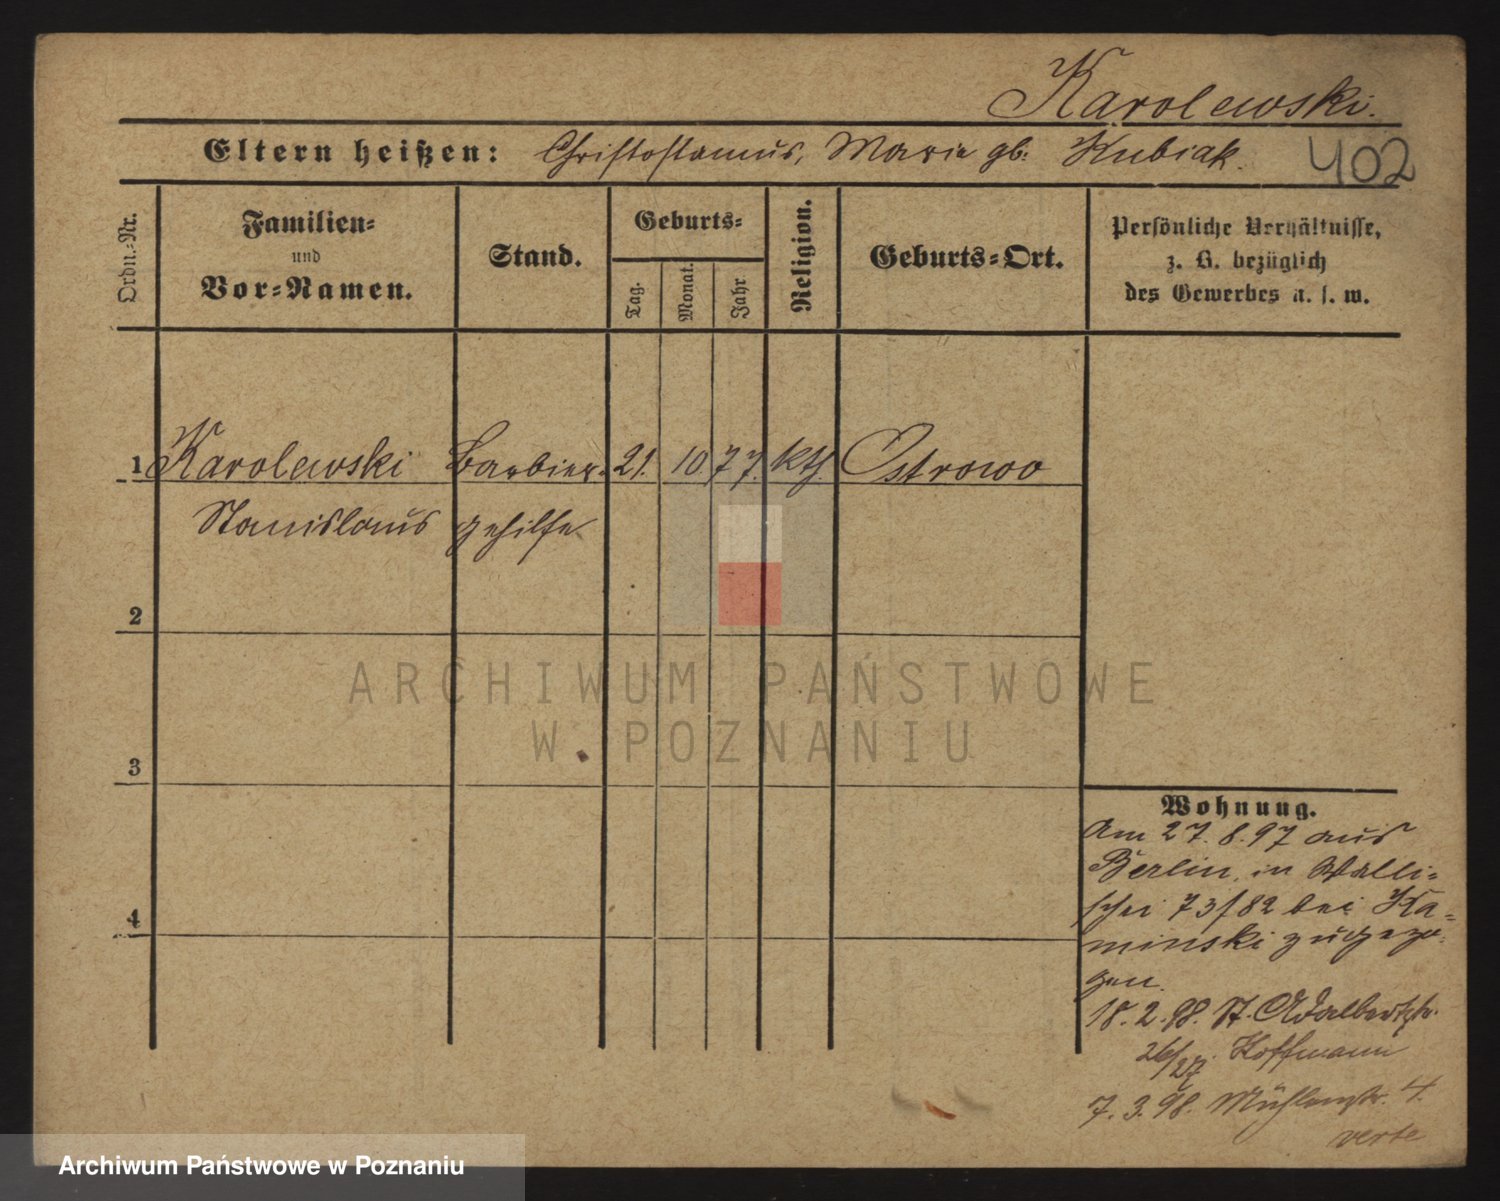 Karolewski.
Eltern heißen: Christostamus, Marie gb. Kubiak. 402
Ordn.-Nr.
Familien-
und
Vor-Namen.
Stand.
Geburts-
Tag.
Monat.
Jahr
Religion.
Geburts-Ort.
Persönliche Verhältnisse,
z. B. bezüglich
des Gewerbes u. s. w.
1 Karolewski Barbier- 21. 10 77. kth. Ostrowo
Stanislaus gehilfe
2
3
4
Wohnung.
Am 27. 8. 97 aus
Berlin, in Walli-
schei 73/82 bei Ka-
minski zugezo-
gen.
18. 2. 98. St. Adalbertstr.
26/27. Hoffmann
7. 3. 98. Mühlenstr. 4.
verte
ARCHIWUM PAŃSTWOWE
W POZNANIU
Archiwum Państwowe w Poznaniu